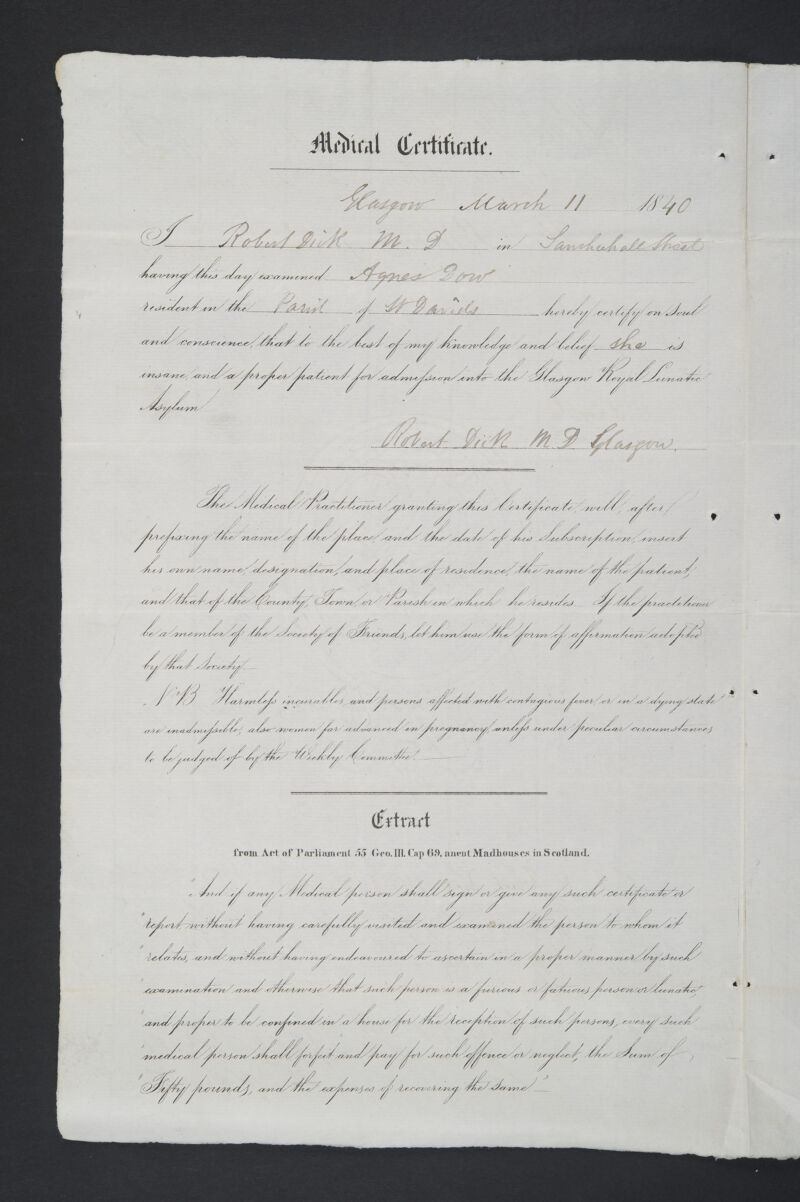 Medical Certificate.
Glasgow March 11 1840
I Robert Dick M. D in Sauchiehall Street
having this day examined Agnes Dow
resident in the Parish of St Davids hereby certify on soul
and conscience, that to the best of my knowledge and belief she is
insane, and a proper patient for admission into the Glasgow Royal Lunatic
Asylum
Robert Dick M D Glasgow.
The Medical Practitioner granting this Certificate, will, after
prefixing the name of the place and the date of his Subscription, insert
his own name, designation, and place of residence, the name of the patient,
and that of the County, Town or Parish in which he resides. If the practitioner
be a member of the Society of Friends, let him use the form of affirmation adopted
by that Society
NB Harmless incurables, and persons affected with contagious fever, or in a dying state
are inadmissible; also women far advanced in pregnancy, unless under peculiar circumstances
to be judged of by the Weekly Committee.
Extract
from Act of Parliament 55 Geo. III. Cap 69, anent Madhouses in Scotland.
"And if any Medical person shall sign or give any such certificate or
"report, without having carefully visited and examined the person to whom it
"relates, and without having endeavoured to ascertain in a proper manner by such
"examination and otherwise that such person is a furious or fatuous person or lunatic,
"and proper to be confined in a house for the reception of such persons, every such
"medical person shall forfeit and pay for such offence or neglect, the Sum of
"Fifty pounds, and the expenses of recovering the same"